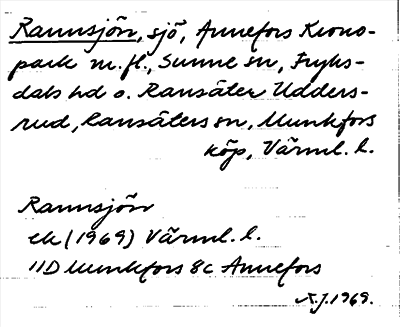 Rannsjön, sjö, Annefors Krono-
park m.fl., Sunne sn, Fryks-
dals hd o. Ransäter Udders-
rud, Ransäters sn, Munkfors
köp, Värml. l.
Rannsjön
ek (1969) Värml. l.
11D Munkfors 8c Annefors
A.J. 1969.